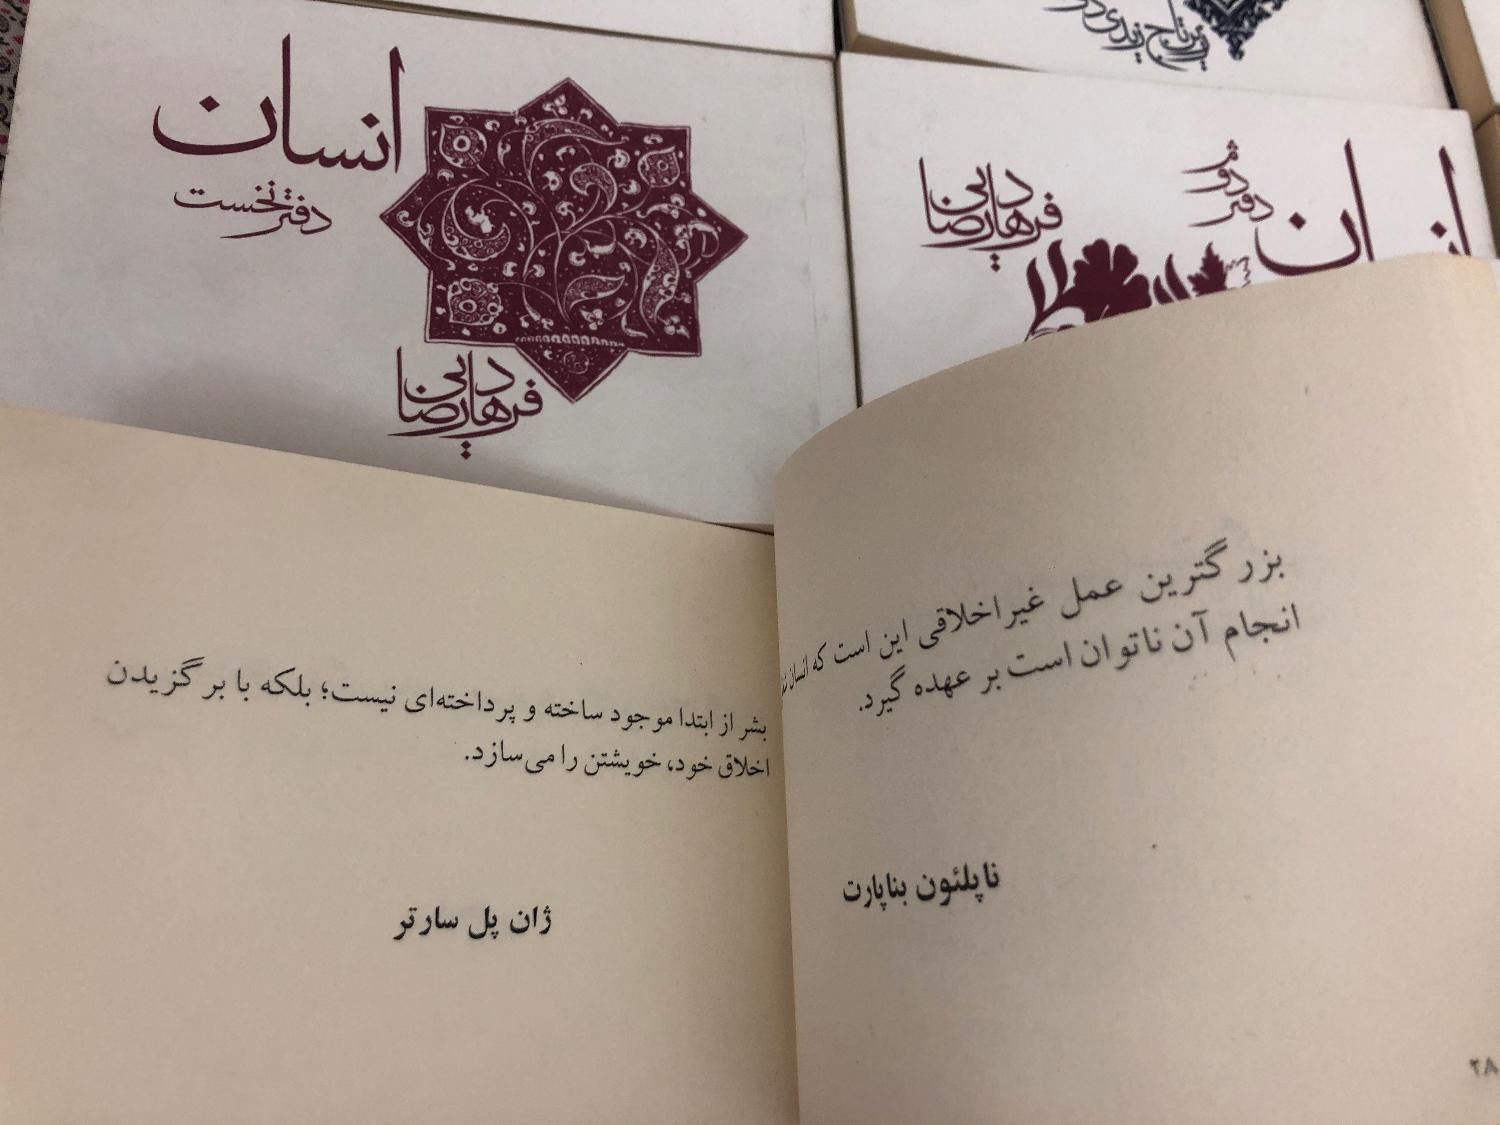 انسان
دفتر نخست
فرهاد رضایی
انسان
دفتر دوم
فرهاد رضایی
بزرگترین عمل غیراخلاقی این است که انسان
انجام آن ناتوان است بر عهده گیرد.
ناپلئون بناپارت
۲۸
بشر از ابتدا موجود ساخته و پرداخته‌ای نیست؛ بلکه با برگزیدن
اخلاق خود، خویشتن را می‌سازد.
ژان پل سارتر